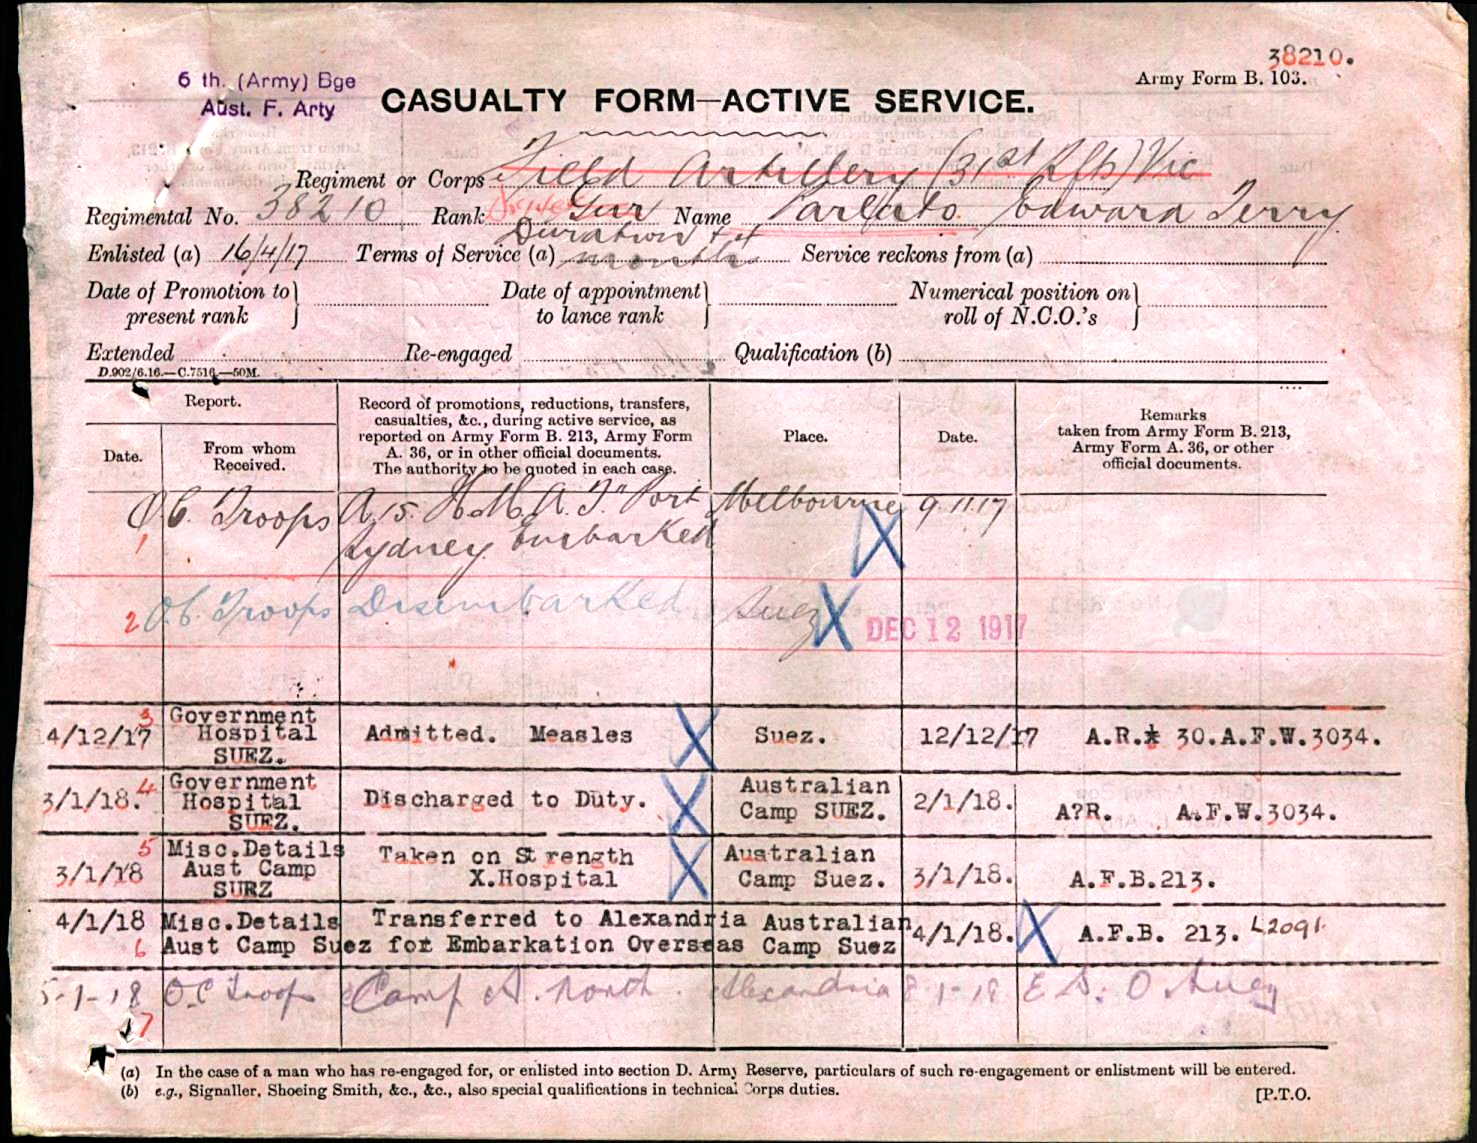 38210.
6 th. (Army) Bge
Aust. F. Arty
Army Form B. 103.
CASUALTY FORM—ACTIVE SERVICE.
Regiment or Corps Field Artillery (31st Rfts) Vic
Regimental No. 38210 Rank Driver Gnr Name Parlato Edward Terry
Enlisted (a) 16/4/17 Terms of Service (a) Duration + 4 months Service reckons from (a)
Date of Promotion to present rank } Date of appointment to lance rank } Numerical position on roll of N.C.O.'s }
Extended Re-engaged Qualification (b)
D.902/6.16.—C.7516.—50M.
Report.
Date.
From whom Received.
Record of promotions, reductions, transfers,
casualties, &c., during active service, as
reported on Army Form B. 213, Army Form
A. 36, or in other official documents.
The authority to be quoted in each case.
Place.
Date.
Remarks
taken from Army Form B. 213,
Army Form A. 36, or other
official documents.
1 O.C. Troops A.15. H.M.A.T. "Port Melbourne 9.11.17
Sydney Embarked
2 O.C. Troops Disembarked Suez DEC 12 1917
3 Government
4/12/17 Hospital Admitted. Measles Suez. 12/12/17 A.R. 30.A.F.W.3034.
SUEZ.
4 Government Australian
3/1/18. Hospital Discharged to Duty. Camp SUEZ. 2/1/18. A?R. A.F.W.3034.
SUEZ.
5 Misc.Details Taken on Strength Australian
3/1/18 Aust Camp X.Hospital Camp Suez. 3/1/18. A.F.B.213.
SURZ
4/1/18 Misc.Details Transferred to Alexandria Australian 4/1/18. A.F.B. 213. L2091.
6 Aust Camp Suez for Embarkation Overseas Camp Suez
5-1-18 O.C Troops Camp A. North. Alexandria 8-1-18 E S. O Suez
7
(a) In the case of a man who has re-engaged for, or enlisted into section D. Army Reserve, particulars of such re-engagement or enlistment will be entered.
(b) e.g., Signaller, Shoeing Smith, &c., &c., also special qualifications in technical Corps duties.
[P.T.O.